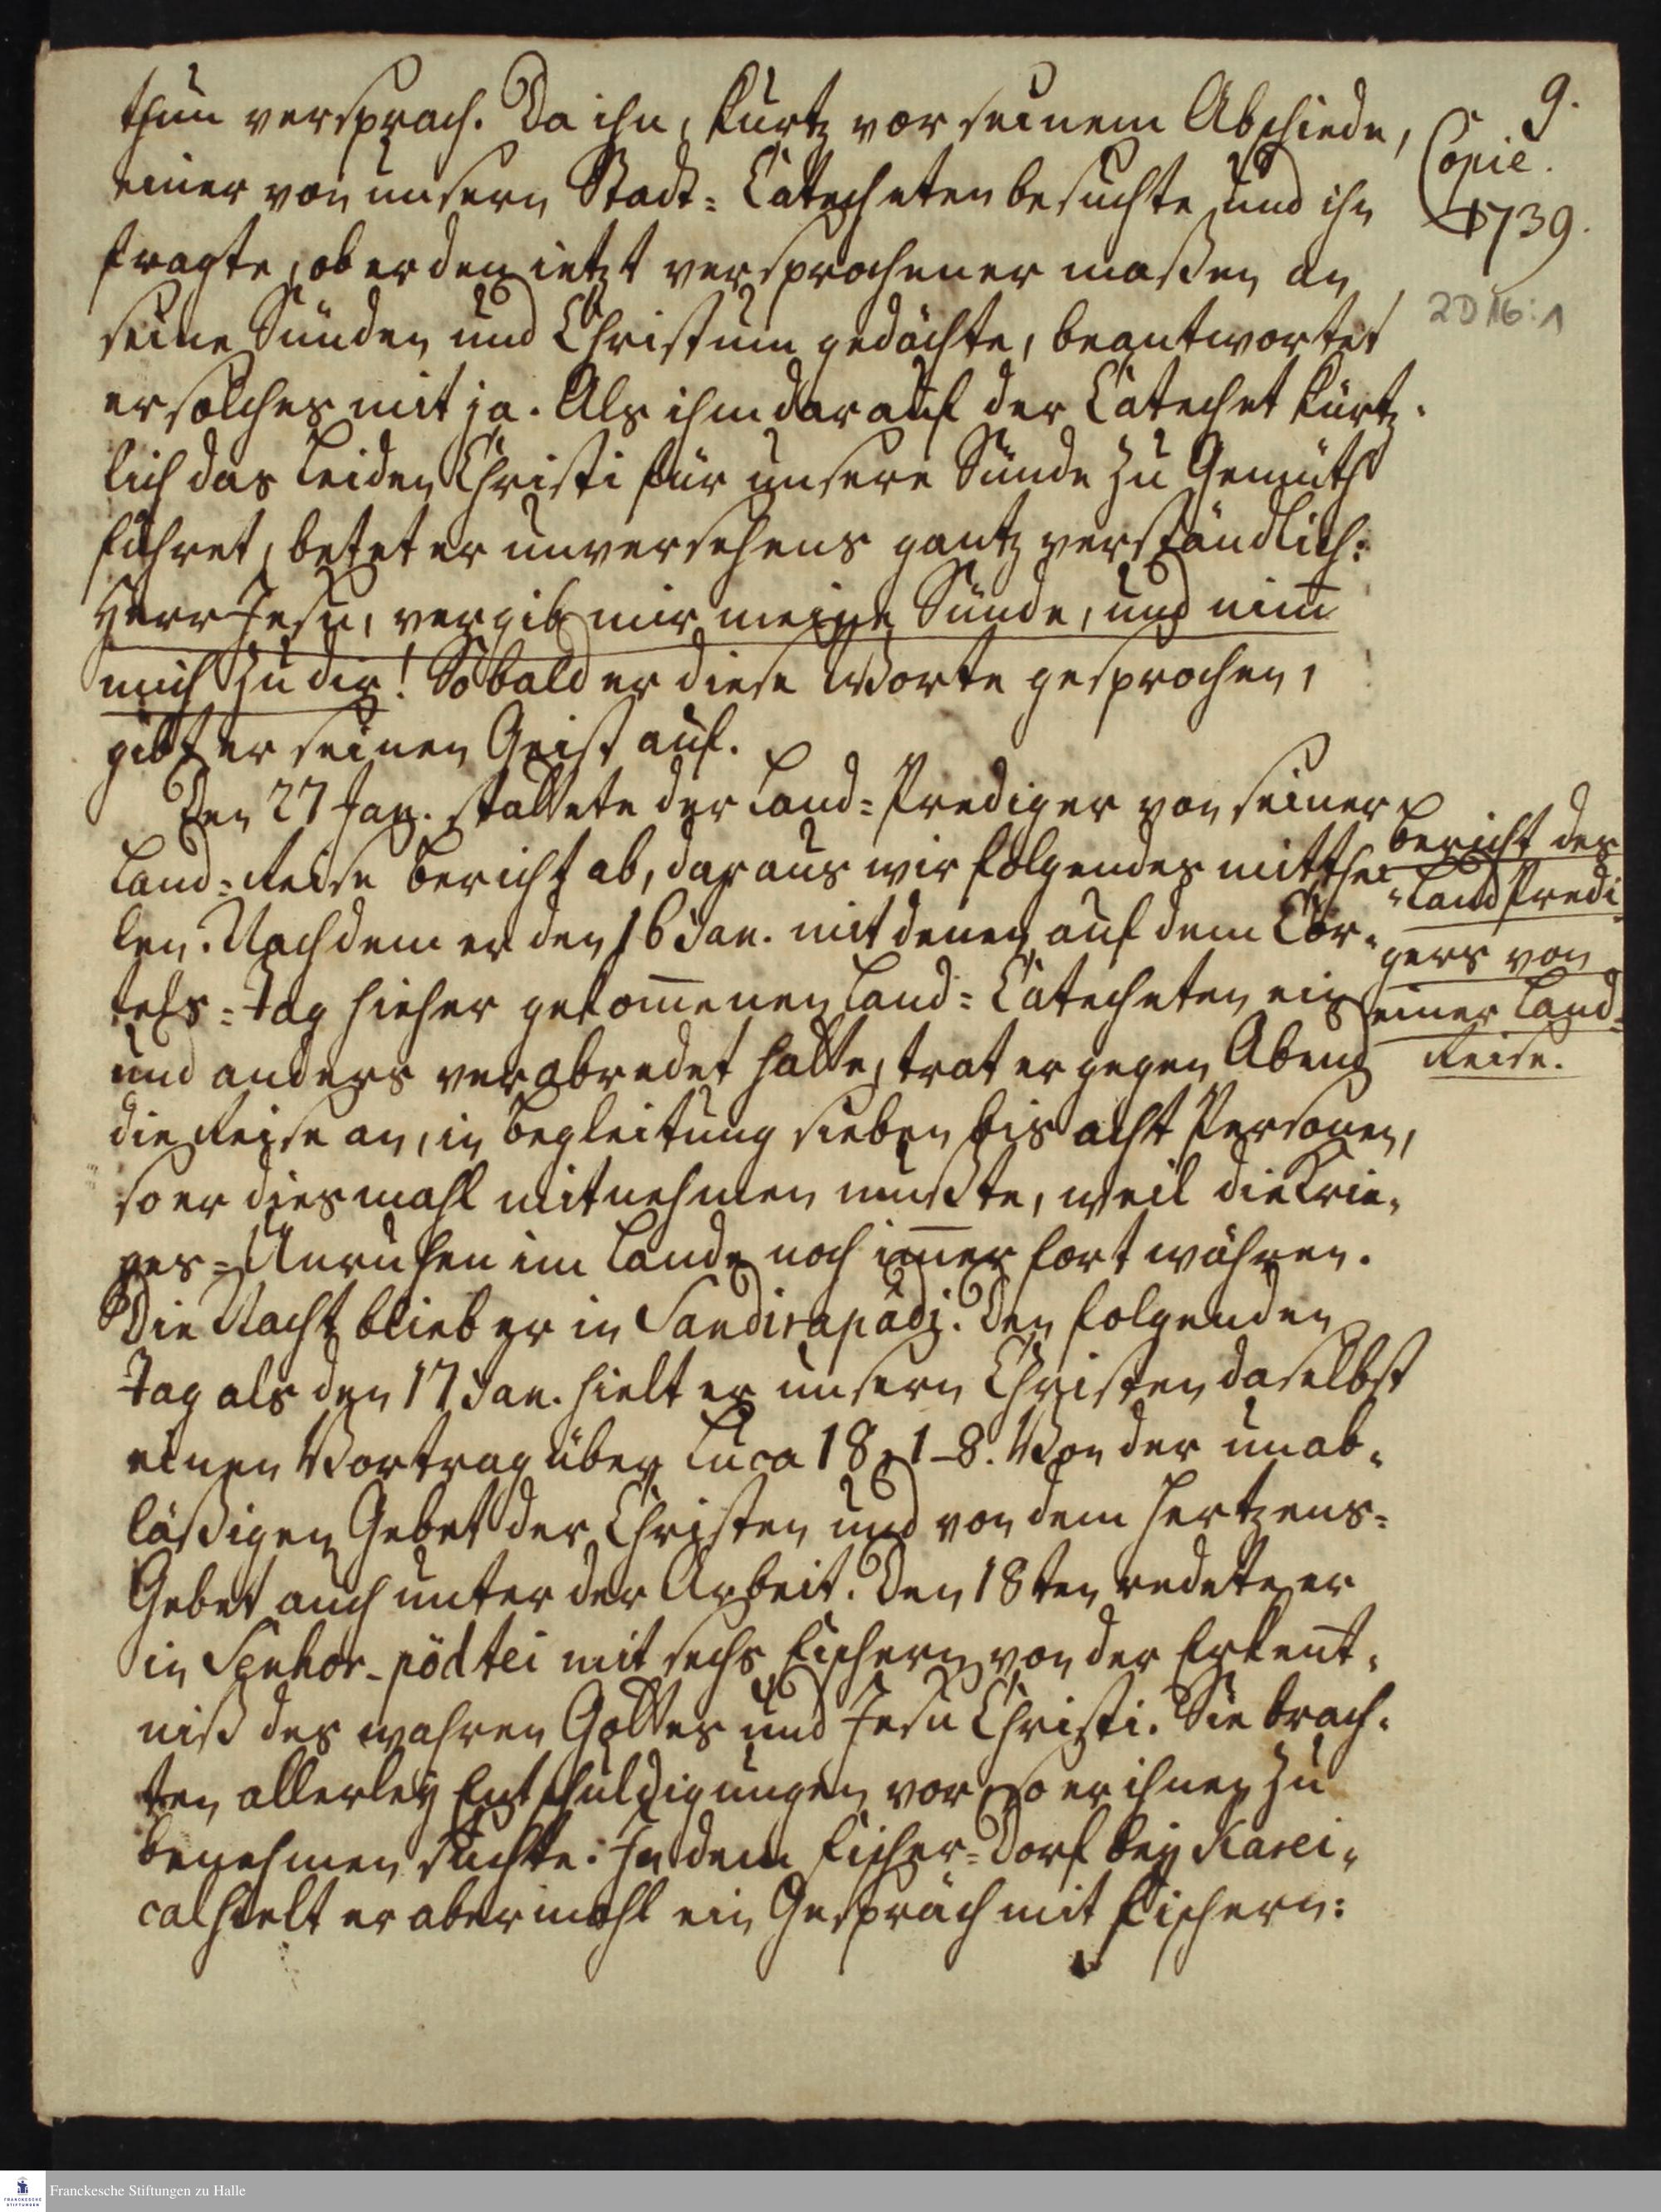 9.
Copie.
1739.
2D 16:1
thun versprach. Da ihn, kurtz vor seinem Abschiede,
einer von unsern Stadt-Catecheten besuchte und ihn
fragte, ob er den ietzt versprochener maßen an
seine Sünden und Christum gedächte, beantwortet
er solches mit ja. Als ihm darauf der Catechet kürtz-
lich das Leiden Christi für unsere Sünde zu Gemüth
führet, betet er unversehens gantz verständlich:
Herr Jesu, vergib mir meine Sünde, und nim̄
mich zu dir! So bald er diese Worte gesprochen,
gibt er seinen Geist auf.
Den 27 Jan. stattete der Land-Prediger von seiner
Land-Reise Bericht ab, daraus wir folgendes mitthei-
len. Nachdem er den 16 Jan. mit denen auf dem
tels-Tag hieher gekom̄enen Land-Catecheten ein
und anders verabredet hatte, trat er gegen Abend
die Reise an, in Begleitung sieben bis acht Personen,
so er diesmahl mitnehmen mußte, weil die Krie-
ges-Unruhen im Lande noch im̄er fort währen.
Die Nacht blieb er in Sandirapadi. Den folgenden
Tag als den 17 Jan. hielt er unsern Christen daselbst
einen Vortrag über Luca 18, 1-8. Von der unab-
läßigen Gebet der Christen und von dem Hertzens-
Gebet auch unter der Arbeit. Den 18ten redete er
in Senhor-pödtei mit sechs Fischern von der Erken̄t-
niß des wahren Gottes und Jesu Christi. Sie brach-
ten allerley Entschuldigungen vor, so er ihnen zu
benehmen suchte. In dem Fischer-Dorf bey Karei-
cal hielt er abermahl ein Gespräch mit Fischern:
Bericht des
Land Predi
gers von
seiner Land-
Reise.
Franckesche Stiftungen zu Halle
FRANCKESCHE
STIFTUNGEN